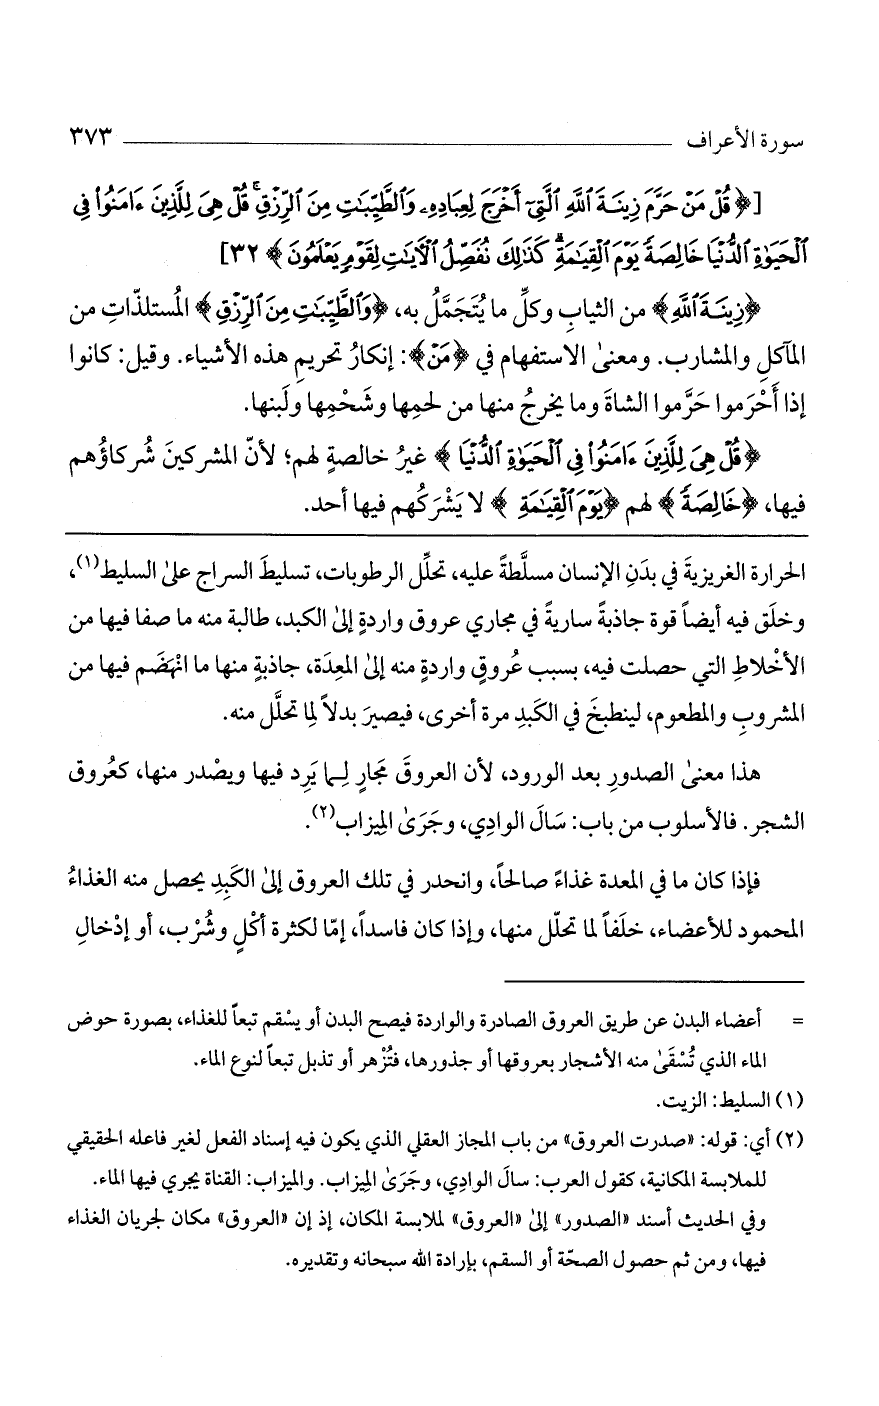 سورة الأعراف ٣٧٣
[﴿قُلْ مَنْ حَرَّمَ زِينَةَ ٱللَّهِ ٱلَّتِىٓ أَخْرَجَ لِعِبَادِهِۦ وَٱلطَّيِّبَٰتِ مِنَ ٱلرِّزْقِۚ قُلْ هِىَ لِلَّذِينَ ءَامَنُوا۟ فِى
ٱلْحَيَوٰةِ ٱلدُّنْيَا خَالِصَةً يَوْمَ ٱلْقِيَٰمَةِۗ كَذَٰلِكَ نُفَصِّلُ ٱلْءَايَٰتِ لِقَوْمٍ يَعْلَمُونَ﴾ ٣٢]
﴿زِينَةَ ٱللَّهِ﴾ من الثيابِ وكلِّ ما يُتَجَمَّلُ به، ﴿وَٱلطَّيِّبَٰتِ مِنَ ٱلرِّزْقِ﴾ المُستلذّاتِ من
المآكلِ والمشارب. ومعنىٰ الاستفهام في ﴿مَنْ﴾: إنكارُ تحريمِ هذه الأشياء. وقيل: كانوا
إذا أَحْرَموا حَرَّموا الشاةَ وما يخرجُ منها من لحمِها وشَحْمِها ولَبنِها.
﴿قُلْ هِىَ لِلَّذِينَ ءَامَنُوا۟ فِى ٱلْحَيَوٰةِ ٱلدُّنْيَا﴾ غيرُ خالصةٍ لهم؛ لأنّ المشركينَ شُركاؤُهم
فيها، ﴿خَالِصَةً﴾ لهم ﴿يَوْمَ ٱلْقِيَٰمَةِ﴾ لا يَشْرَكُهم فيها أحد.
الحرارة الغريزيةَ في بدَنِ الإنسان مسلَّطةً عليه، تحلِّل الرطوبات، تسليطَ السراج علىٰ السليط(١)،
وخلَق فيه أيضاً قوة جاذبةً ساريةً في مجاري عروق واردةٍ إلىٰ الكبد، طالبة منه ما صفا فيها من
الأخْلاطِ التي حصلت فيه، بسبب عُروقٍ واردةٍ منه إلىٰ المعِدَة، جاذبةٍ منها ما انْهَضَم فيها من
المشروبِ والمطعوم، لينطبخَ في الكَبدِ مرة أخرى، فيصيرَ بدلاً لِما تحلَّل منه.
هذا معنىٰ الصدورِ بعد الورود، لأن العروقَ مجَارٍ لِـما يَرِد فيها ويصْدر منها، كعُروق
الشجر. فالأسلوب من باب: سَالَ الوادِي، وجَرَىٰ المِيزاب(٢).
فإذا كان ما في المعدة غذاءً صالحاً، وانحدر في تلك العروق إلىٰ الكَبِدِ يحصل منه الغذاءُ
المحمود للأعضاء، خلَفاً لما تحلّل منها، وإذا كان فاسداً، إمّا لكثرة أكْلٍ وشُرْب، أو إدْخالِ
= أعضاء البدن عن طريق العروق الصادرة والواردة فيصح البدن أو يسْقم تبعاً للغذاء، بصورة حوض
الماء الذي تُسْقَىٰ منه الأشجار بعروقها أو جذورها، فتُزْهر أو تذبل تبعاً لنوع الماء.
(١) السليط: الزيت.
(٢) أي: قوله: «صدرت العروق» من باب المجاز العقلي الذي يكون فيه إسناد الفعل لغير فاعله الحقيقي
للملابسة المكانية، كقول العرب: سالَ الوادِي، وجَرَىٰ المِيزاب. والميزاب: القناة يجري فيها الماء.
وفي الحديث أسند «الصدور» إلىٰ «العروق» لملابسة المكان، إذ إن «العروق» مكان لجريان الغذاء
فيها، ومن ثم حصول الصحّة أو السقم، بإرادة الله سبحانه وتقديره.